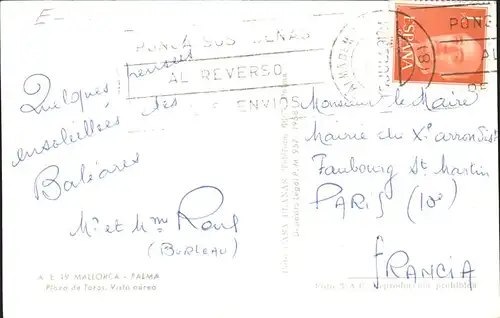 E-
PONGA SUS SEÑAS
AL REVERSO
ENVIOS
ESPAÑA
PONG
AL
Quelques pensées
ensoleillées des
Baléares
Mr et Mme Raoul
(BURLEAU)
Monsieur le Maire
Mairie du Xe arrondist
Faubourg St Martin
PARIS (10e)
FRANCIA
A. E. 19 MALLORCA - PALMA
Plaza de Toros. Vista aérea
Reproducción prohibida